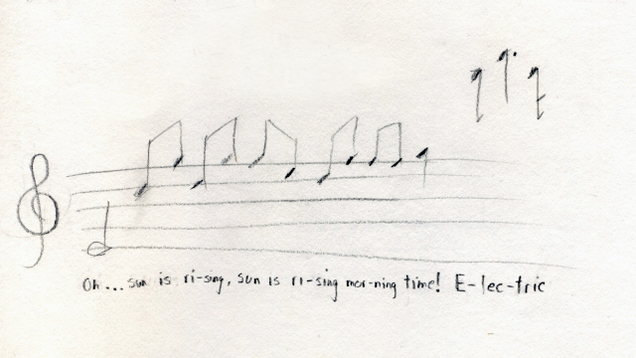 Oh... sun is ri-sing, sun is ri-sing mor-ning time! E-lec-tric